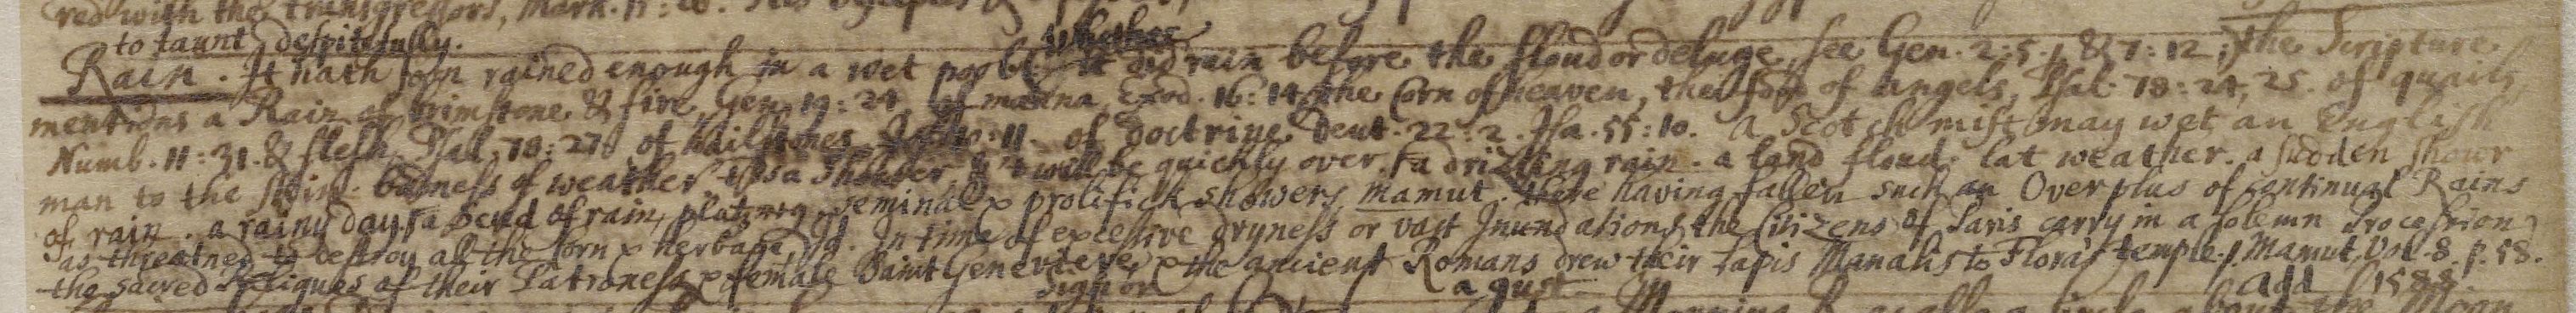 red with the transgressors, Mark. 15: 28.
to taunt despitefully.
Rain. It hath soon rained enough in a wet pool. Whether it did rain before the floud or deluge, see Gen. 2: 5. & 7: 12. the Scripture
mentions a Rain of brimstone & fire, Gen. 19: 24. of manna, Exod. 16: 14. the corn of heaven, the food of angels, Psal. 78: 24, 25. of quails,
Numb. 11: 31. & flesh, Psal. 78: 27. of hailstones, Josh. 10: 11. of doctrine, Deut. 22: 2. Isa. 55: 10. A Scotch mist may wet an English
man to the skin. of weather. tis a Shower, & 't will be quickly over. a drizling rain. a land floud. lat weather. a sudden showr
of rain. a rainy day. a scud of rain, seminal & prolifick showers, Mamut. there having fallen such an Overplus of continual Rains
as threatned to destroy all the corn & herbage, Id. In time of excessive dryness or vast Inundations, the Citizens of Paris carry in a solemn Procession
the sacred Reliques of their Patroness & female Saint Genevieve, & the ancient Romans drew their Lapis Manalis to Flora's temple. Mamut, Vol. 8. p. 58.
Sign or a gust add 1588